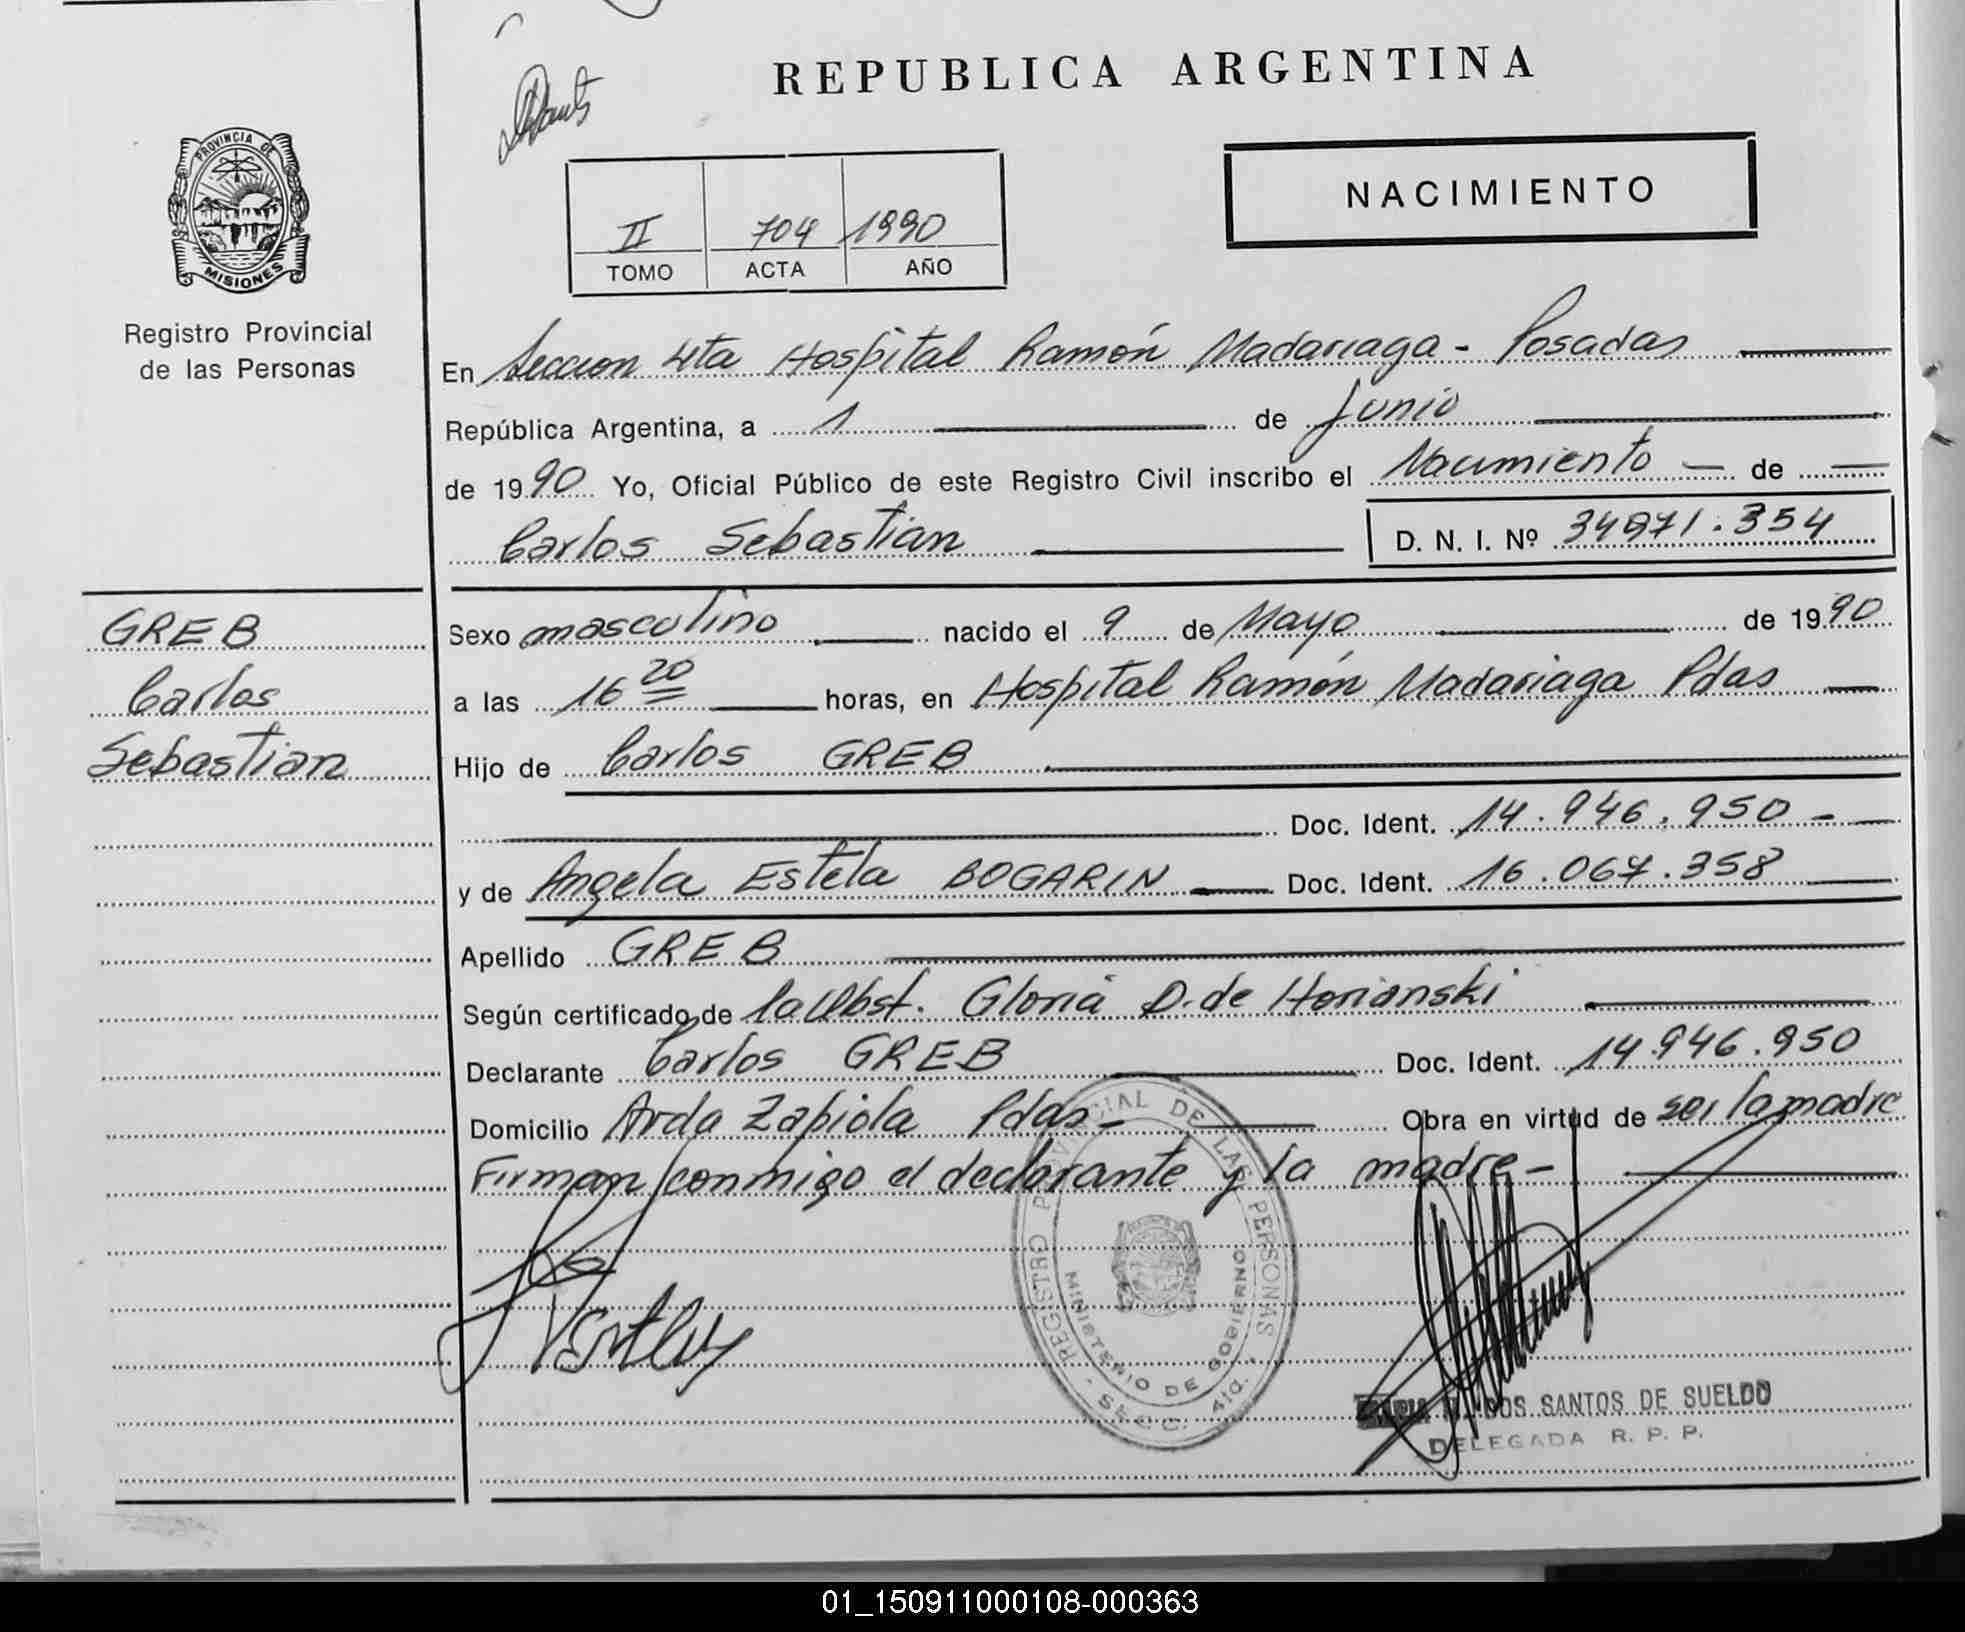 REPUBLICA ARGENTINA
PROVINCIA DE
MISIONES
Registro Provincial
de las Personas
II 704 1990
TOMO ACTA AÑO
NACIMIENTO
En Seccion 4ta Hospital Ramón Madariaga - Posadas
República Argentina, a 1 de Junio
de 1990 Yo, Oficial Público de este Registro Civil inscribo el Nacimiento de
Carlos Sebastian D. N. I. Nº 34.871.354
GREB
Carlos
Sebastian
Sexo masculino nacido el 9 de Mayo de 1990
a las 16 20 horas, en Hospital Ramón Madariaga Pdas
Hijo de Carlos GREB
Doc. Ident. 14.946.950 -
y de Angela Estela BOGARIN Doc. Ident. 16.067.358
Apellido GREB
Según certificado de la Obst. Gloria D. de Horianski
Declarante Carlos GREB Doc. Ident. 14.946.950
Domicilio Avda Zapiola Pdas - Obra en virtud de ser la madre
Firman conmigo el declarante y la madre -
REGISTRO PROVINCIAL DE LAS PERSONAS
MINISTERIO DE GOBIERNO
- SECC. 4ta. -
DOS SANTOS DE SUELDO
DELEGADA R. P. P.
01_150911000108-000363